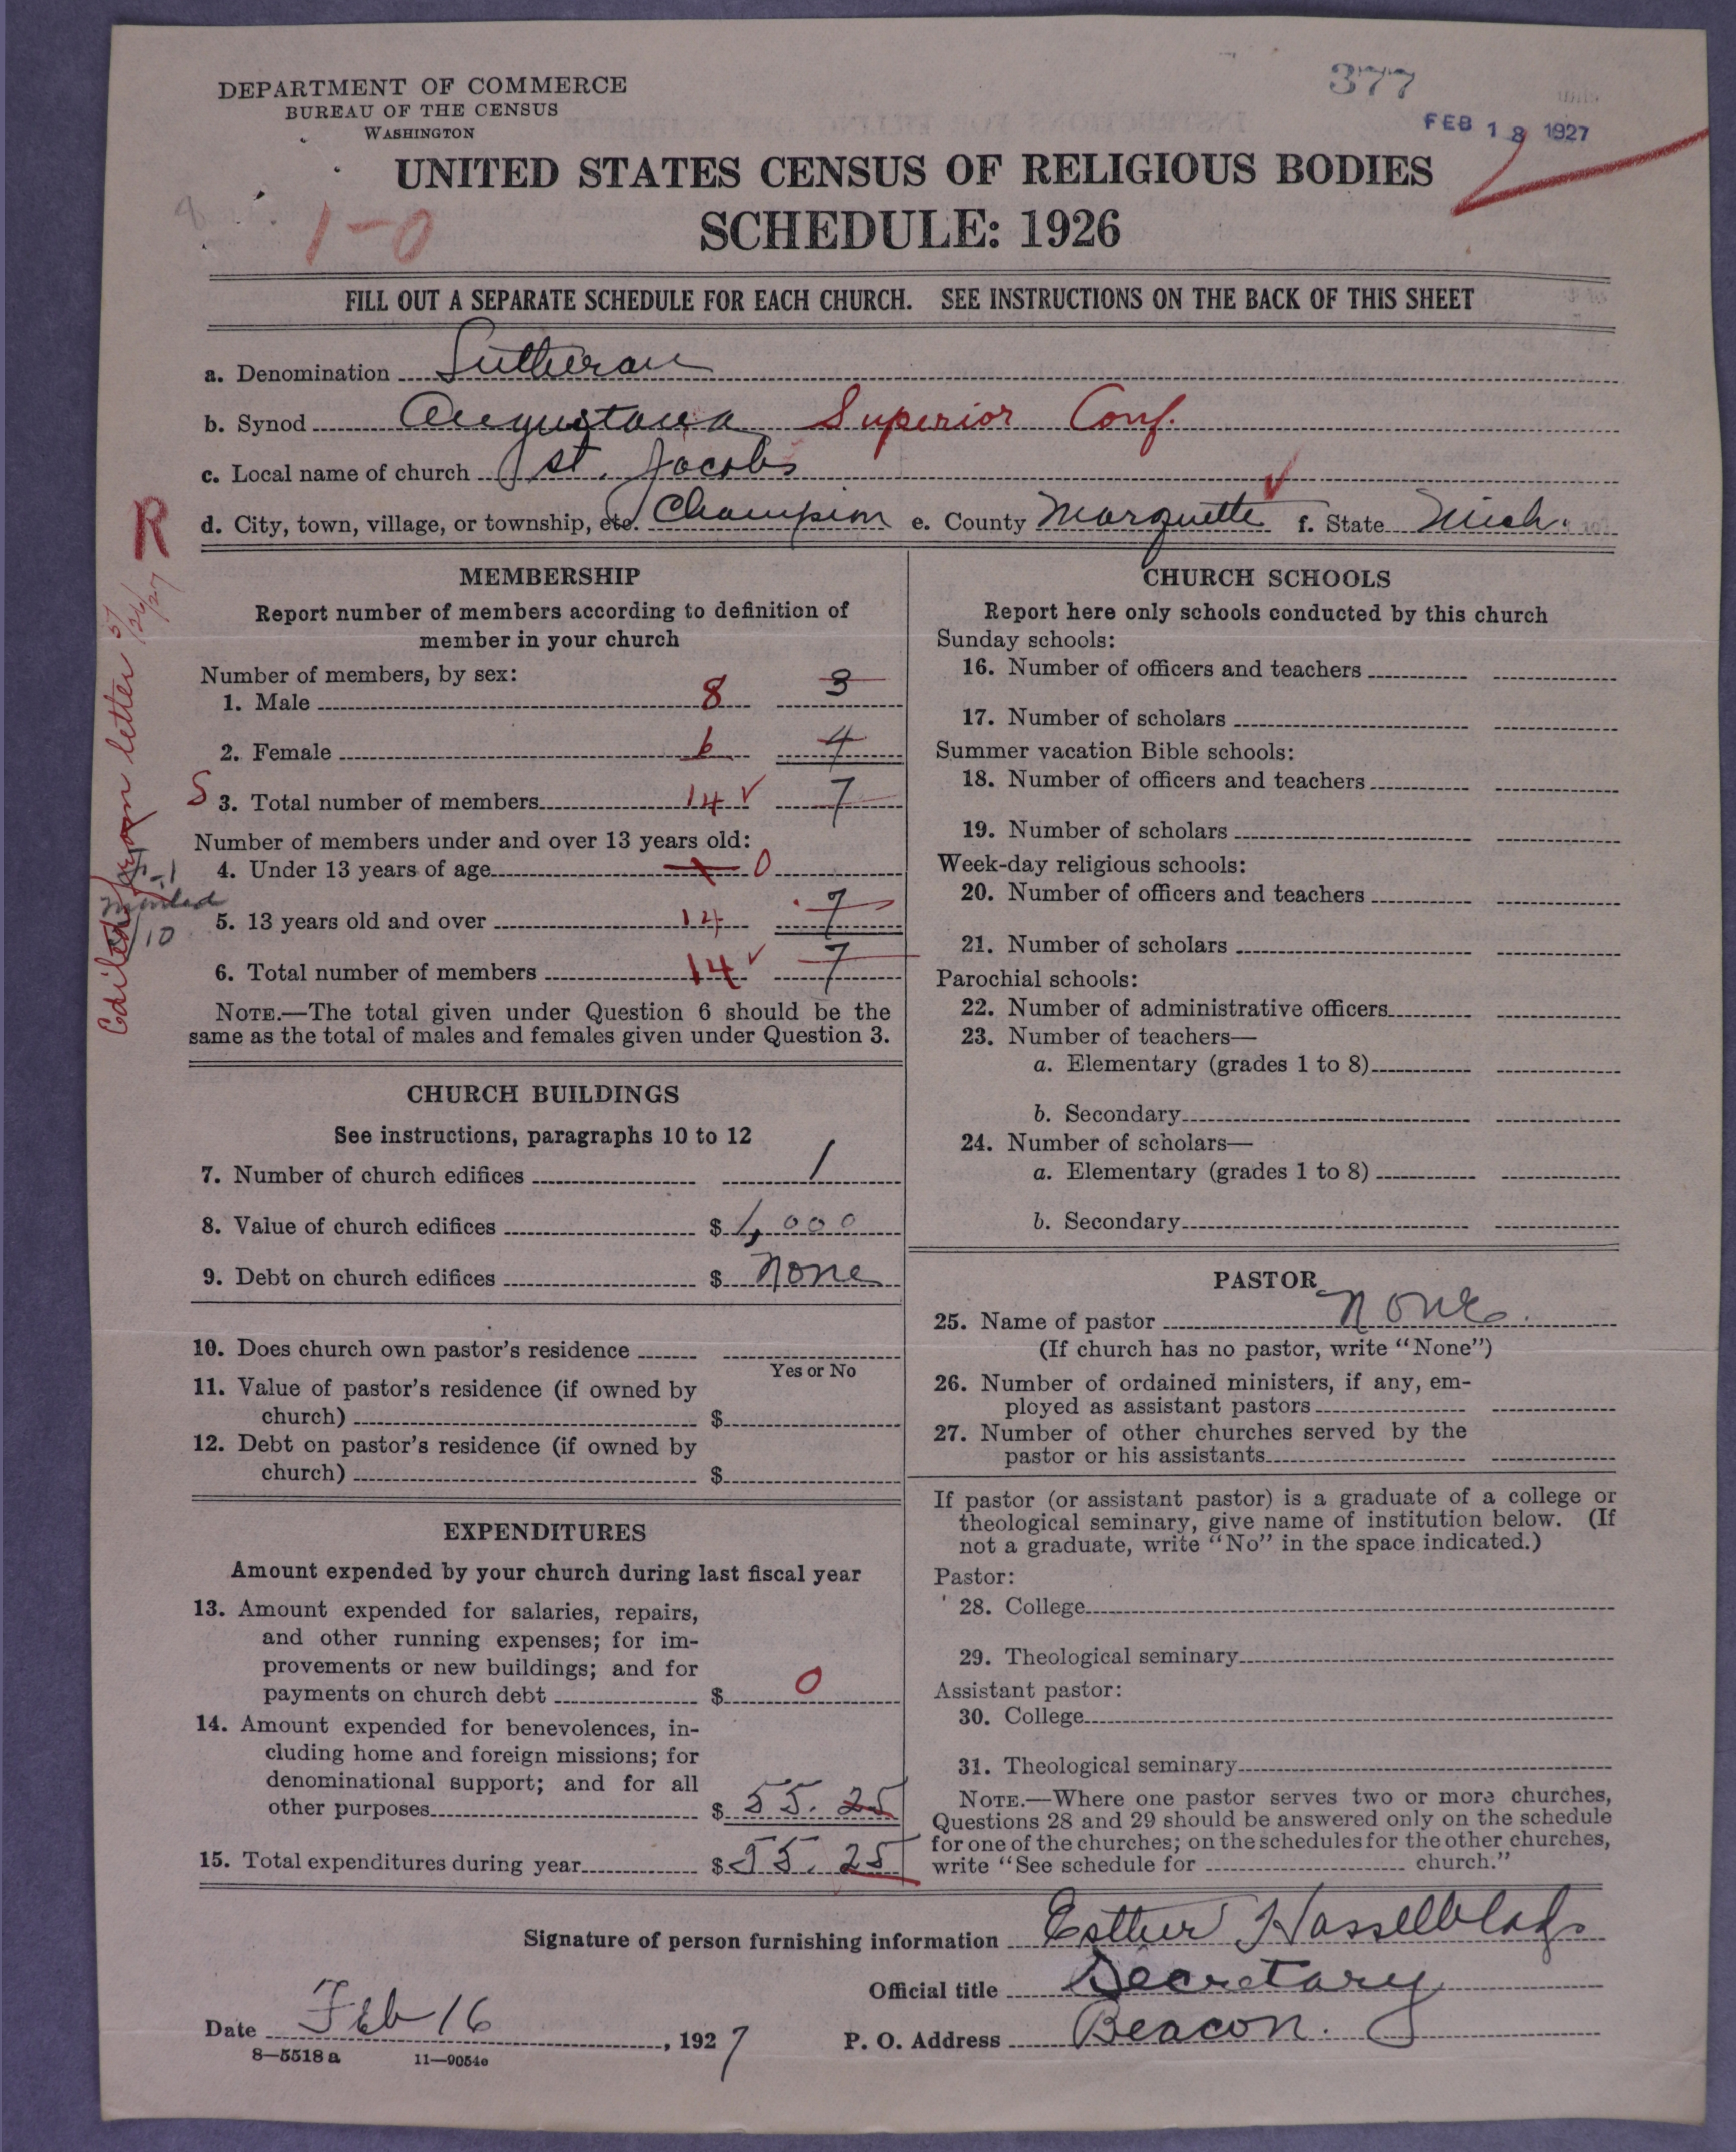 377
FEB 18 1927
DEPARTMENT OF COMMERCE
BUREAU OF THE CENSUS
WASHINGTON
UNITED STATES CENSUS OF RELIGIOUS BODIES
1-0
SCHEDULE: 1926
FILL OUT A SEPARATE SCHEDULE FOR EACH CHURCH. SEE INSTRUCTIONS ON THE BACK OF THIS SHEET
a. Denomination Lutheran
b. Synod Augustana Superior Conf.
c. Local name of church St. Jacobs
d. City, town, village, or township, etc. Champion e. County Marquette f. State Mich.
R
letter
MEMBERSHIP
Report number of members according to definition of
member in your church
Number of members, by sex:
1. Male 8 3
2. Female 6 4
S 3. Total number of members 14 ✓ 7
Number of members under and over 13 years old:
4. Under 13 years of age 0
5. 13 years old and over 14 7
6. Total number of members 14 ✓ 7
NOTE.—The total given under Question 6 should be the
same as the total of males and females given under Question 3.
CHURCH BUILDINGS
See instructions, paragraphs 10 to 12
7. Number of church edifices 1
8. Value of church edifices $ 1,000
9. Debt on church edifices $ None
10. Does church own pastor's residence
Yes or No
11. Value of pastor's residence (if owned by
church) $
12. Debt on pastor's residence (if owned by
church) $
EXPENDITURES
Amount expended by your church during last fiscal year
13. Amount expended for salaries, repairs,
and other running expenses; for im-
provements or new buildings; and for
payments on church debt $ 0
14. Amount expended for benevolences, in-
cluding home and foreign missions; for
denominational support; and for all
other purposes $ 55.25
15. Total expenditures during year $ 55.25
CHURCH SCHOOLS
Report here only schools conducted by this church
Sunday schools:
16. Number of officers and teachers
17. Number of scholars
Summer vacation Bible schools:
18. Number of officers and teachers
19. Number of scholars
Week-day religious schools:
20. Number of officers and teachers
21. Number of scholars
Parochial schools:
22. Number of administrative officers
23. Number of teachers—
a. Elementary (grades 1 to 8)
b. Secondary
24. Number of scholars—
a. Elementary (grades 1 to 8)
b. Secondary
PASTOR
25. Name of pastor None.
(If church has no pastor, write "None")
26. Number of ordained ministers, if any, em-
ployed as assistant pastors
27. Number of other churches served by the
pastor or his assistants
If pastor (or assistant pastor) is a graduate of a college or
theological seminary, give name of institution below. (If
not a graduate, write "No" in the space indicated.)
Pastor:
28. College
29. Theological seminary
Assistant pastor:
30. College
31. Theological seminary
NOTE.—Where one pastor serves two or more churches,
Questions 28 and 29 should be answered only on the schedule
for one of the churches; on the schedules for the other churches,
write "See schedule for church."
Signature of person furnishing information Esther Hasselblad
Official title Secretary
Date Feb 16, 1927 P. O. Address Beacon.
8—5518 a 11—9054e